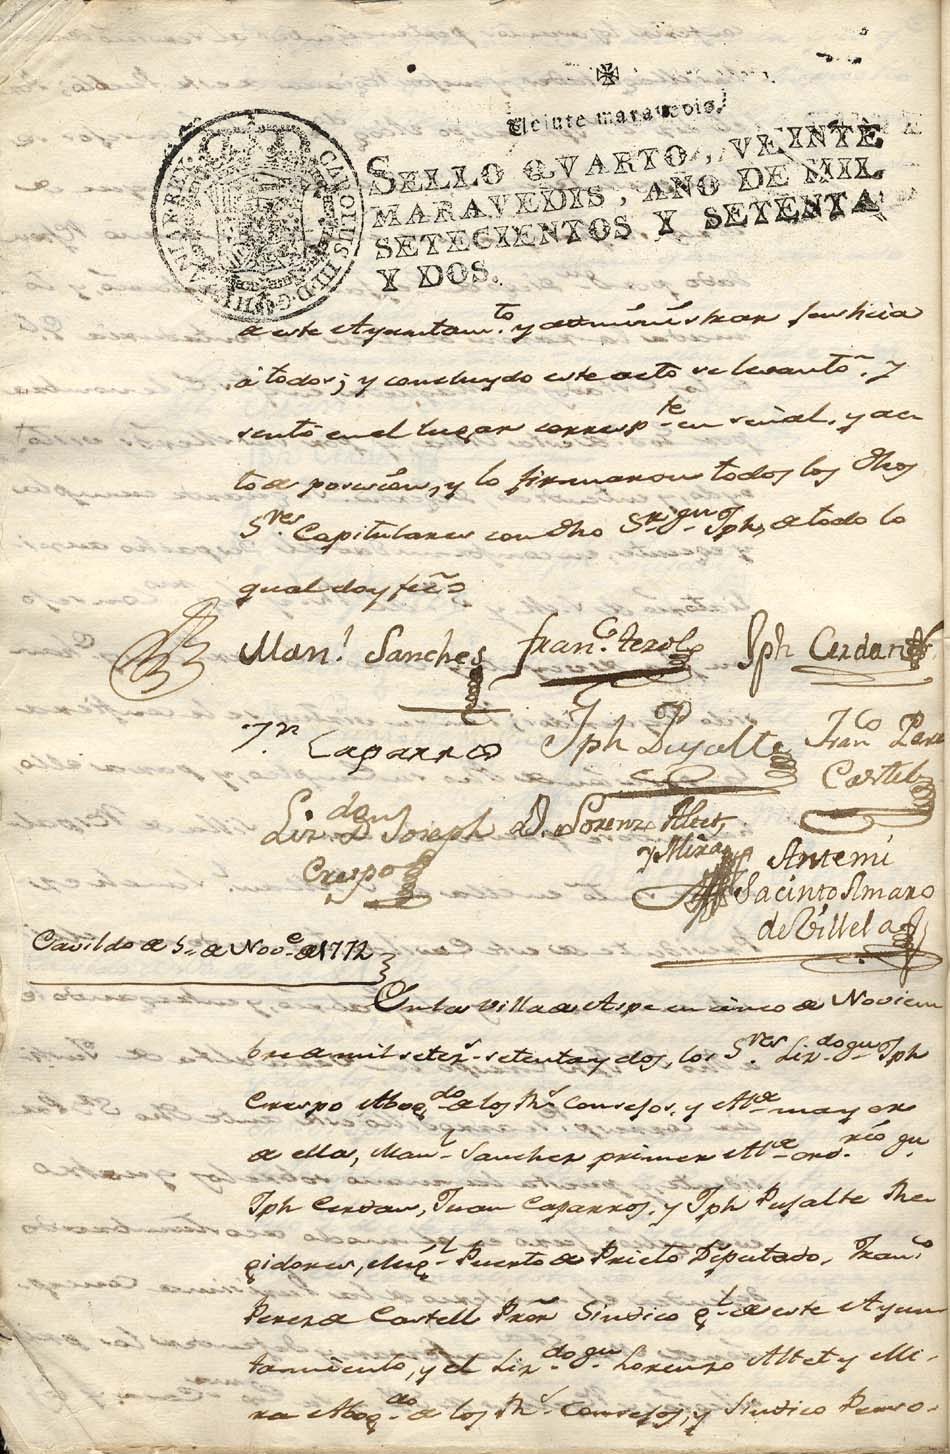 Veinte maravedis.
SELLO QVARTO, VEINTE
MARAVEDIS, AÑO DE MIL
SETECIENTOS Y SETENTA
Y DOS.
CAROLUS III D.G. HISPANIAR REX
a este Ayuntam.to y administrar Justicia
â todos; y concluydo este acto se levantô, y
sentô en el lugar corresp.te en señal, y ac
to de posesion, y lo firmaron todos los dhos
S.res Capitulares con dho S.r Jph, de todo lo
qual doy feê
Man.l Sanches
Fran.co terol
Jph Cerdan
Jn Caparros
Jph Pujalte
Fran.co Perez
Castel
Liz.do Dn Joseph
Crespo
D. Lorenzo Altet,
y Mira
Antemi
Jacinto Amaro
de Villela
Cavildo de 5 de Nov.e de 1772
En la Villa de Aspe en cinco de Noviem
bre de mil setez.s setenta y dos, los S.res Liz.do Dn Jph
Crespo Abog.do de los R.s Consejos, y Al.de mayor
de ella, Man.l Sanchez primer Al.de ord.rio Dn
Jph Cerdan, Juan Caparros, y Jph Pujalte Re
gidores, Mig.l Puerto de Prieto Diputado, Fran.co
Perez de Castell Pror Sindico g.l de este Ayun
tamiento, y el Liz.do Dn Lorenzo Altet y Mi
ra Abog.do de los R.s Consejos, y Sindico Perso